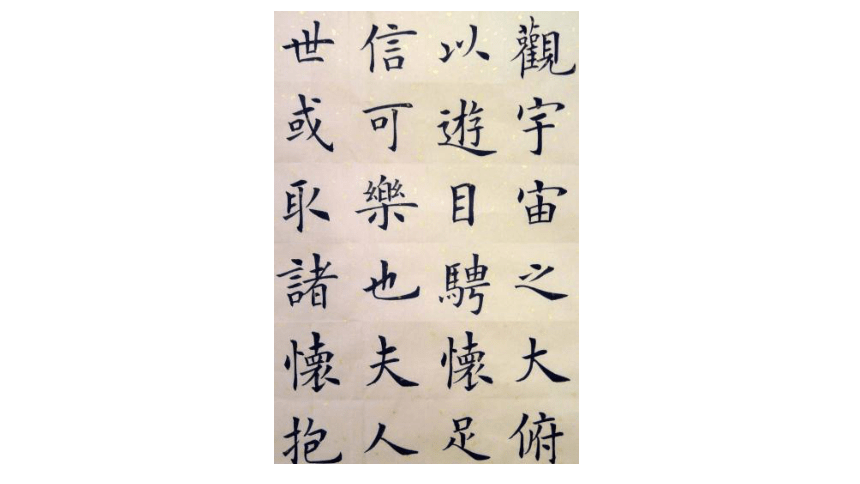 觀宇宙之大俯
以遊目騁懷足
信可樂也夫人
世或取諸懷抱